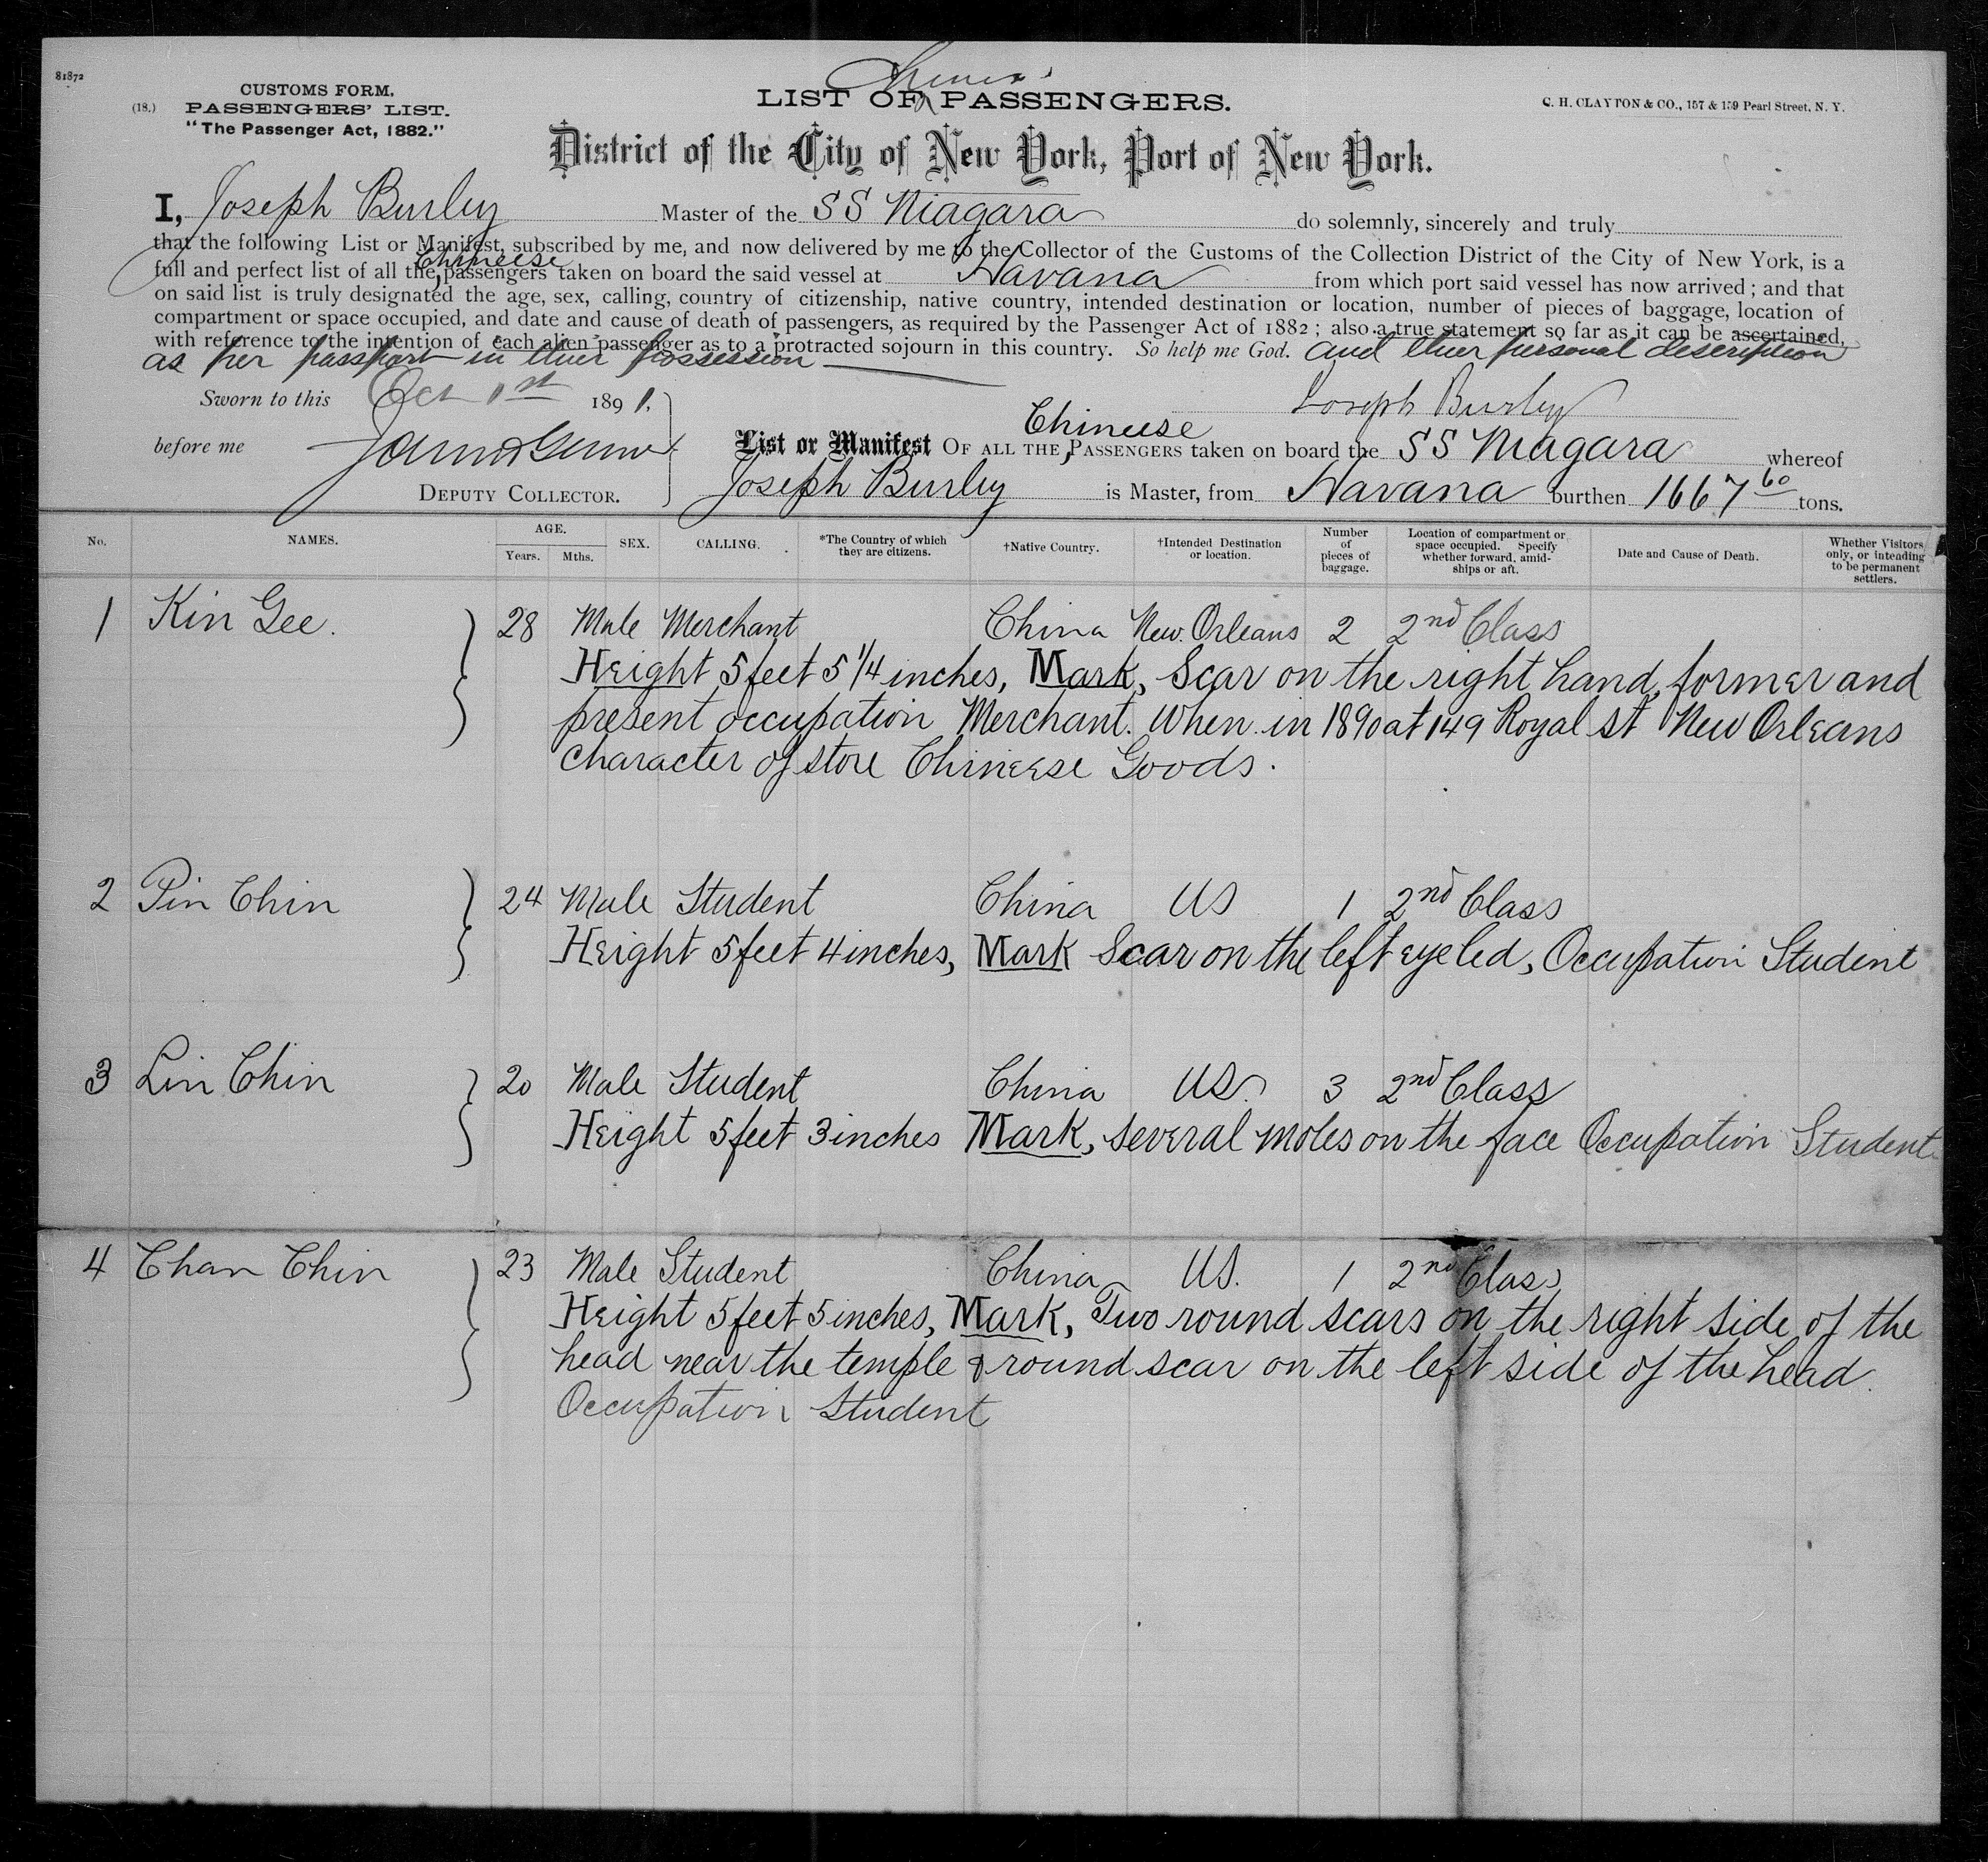 81872
(18.)
CUSTOMS FORM.
PASSENGERS' LIST.
"The Passenger Act, 1882."
LIST OF PASSENGERS.
C. H. CLAYTON & CO., 157 & 159 Pearl Street, N. Y.
District of the City of New York, Port of New York.
I, Joseph Burley Master of the SS Niagara do solemnly, sincerely and truly
that the following List or Manifest, subscribed by me, and now delivered by me to the Collector of the Customs of the Collection District of the City of New York, is a
full and perfect list of all the Chineese passengers taken on board the said vessel at Havana from which port said vessel has now arrived; and that
on said list is truly designated the age, sex, calling, country of citizenship, native country, intended destination or location, number of pieces of baggage, location of
compartment or space occupied, and date and cause of death of passengers, as required by the Passenger Act of 1882; also a true statement so far as it can be ascertained,
with reference to the intention of each alien passenger as to a protracted sojourn in this country. So help me God. and their personal description
as per passport in their possession
Sworn to this Oct 1st 1891.
Joseph Burley
before me
DEPUTY COLLECTOR.
List or Manifest OF ALL THE Chineese PASSENGERS taken on board the SS Niagara whereof
Joseph Burley is Master, from Havana burthen 1667 60 tons.
No. NAMES. AGE. Years. Mths. SEX. CALLING. *The Country of which they are citizens. †Native Country. †Intended Destination or location. Number of pieces of baggage. Location of compartment or space occupied. Specify whether forward, amid-ships or aft. Date and Cause of Death. Whether Visitors only, or intending to be permanent settlers.
1 Kin Gee. 28 Male Merchant China New. Orleans 2 2nd Class
Height 5 feet 5 1/4 inches, Mark, Scar on the right hand, former and
present occupation Merchant. When in 1890 at 149 Royal st New Orleans
character of store Chineese Goods.
2 Pin Chin 24 Male Student China US 1 2nd Class
Height 5 feet 4 inches, Mark Scar on the left eye led, Occupation Student
3 Lin Chin 20 Male Student China US. 3 2nd Class
Height 5 feet 3 inches Mark, several moles on the face Occupation Student
4 Chan Chin 23 Male Student China US. 1 2nd Class
Height 5 feet 5 inches, Mark, Two round scars on the right side of the
head near the temple & round scar on the left side of the head.
Occupation Student